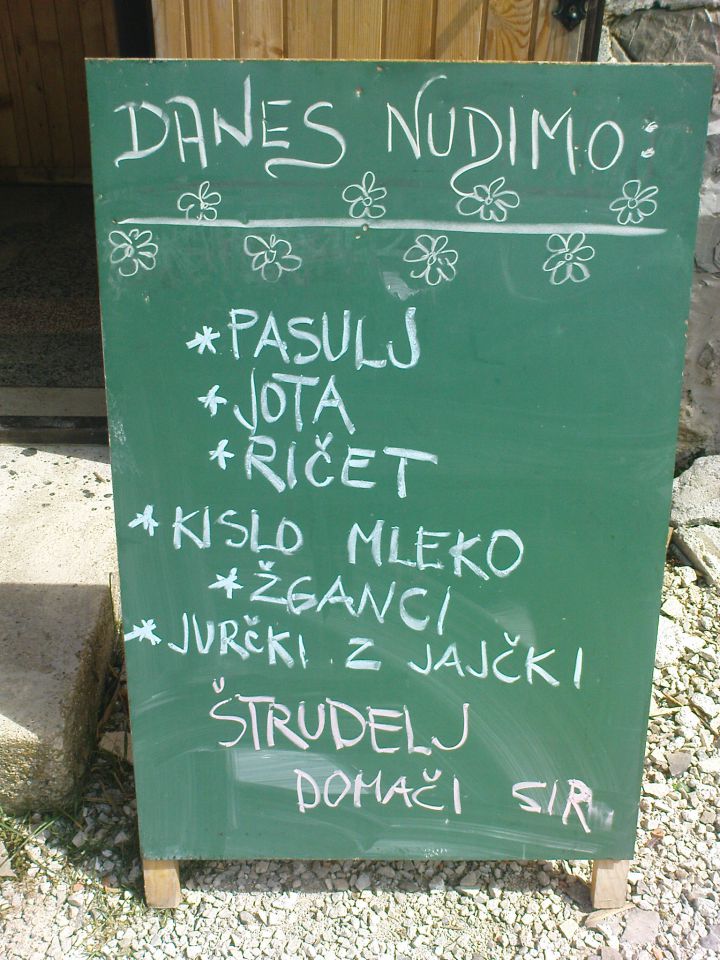 DANES NUDIMO:
* PASULJ
* JOTA
* RIČET
* KISLO MLEKO
* ŽGANCI
* JURČKI Z JAJČKI
ŠTRUDELJ
DOMAČI SIR